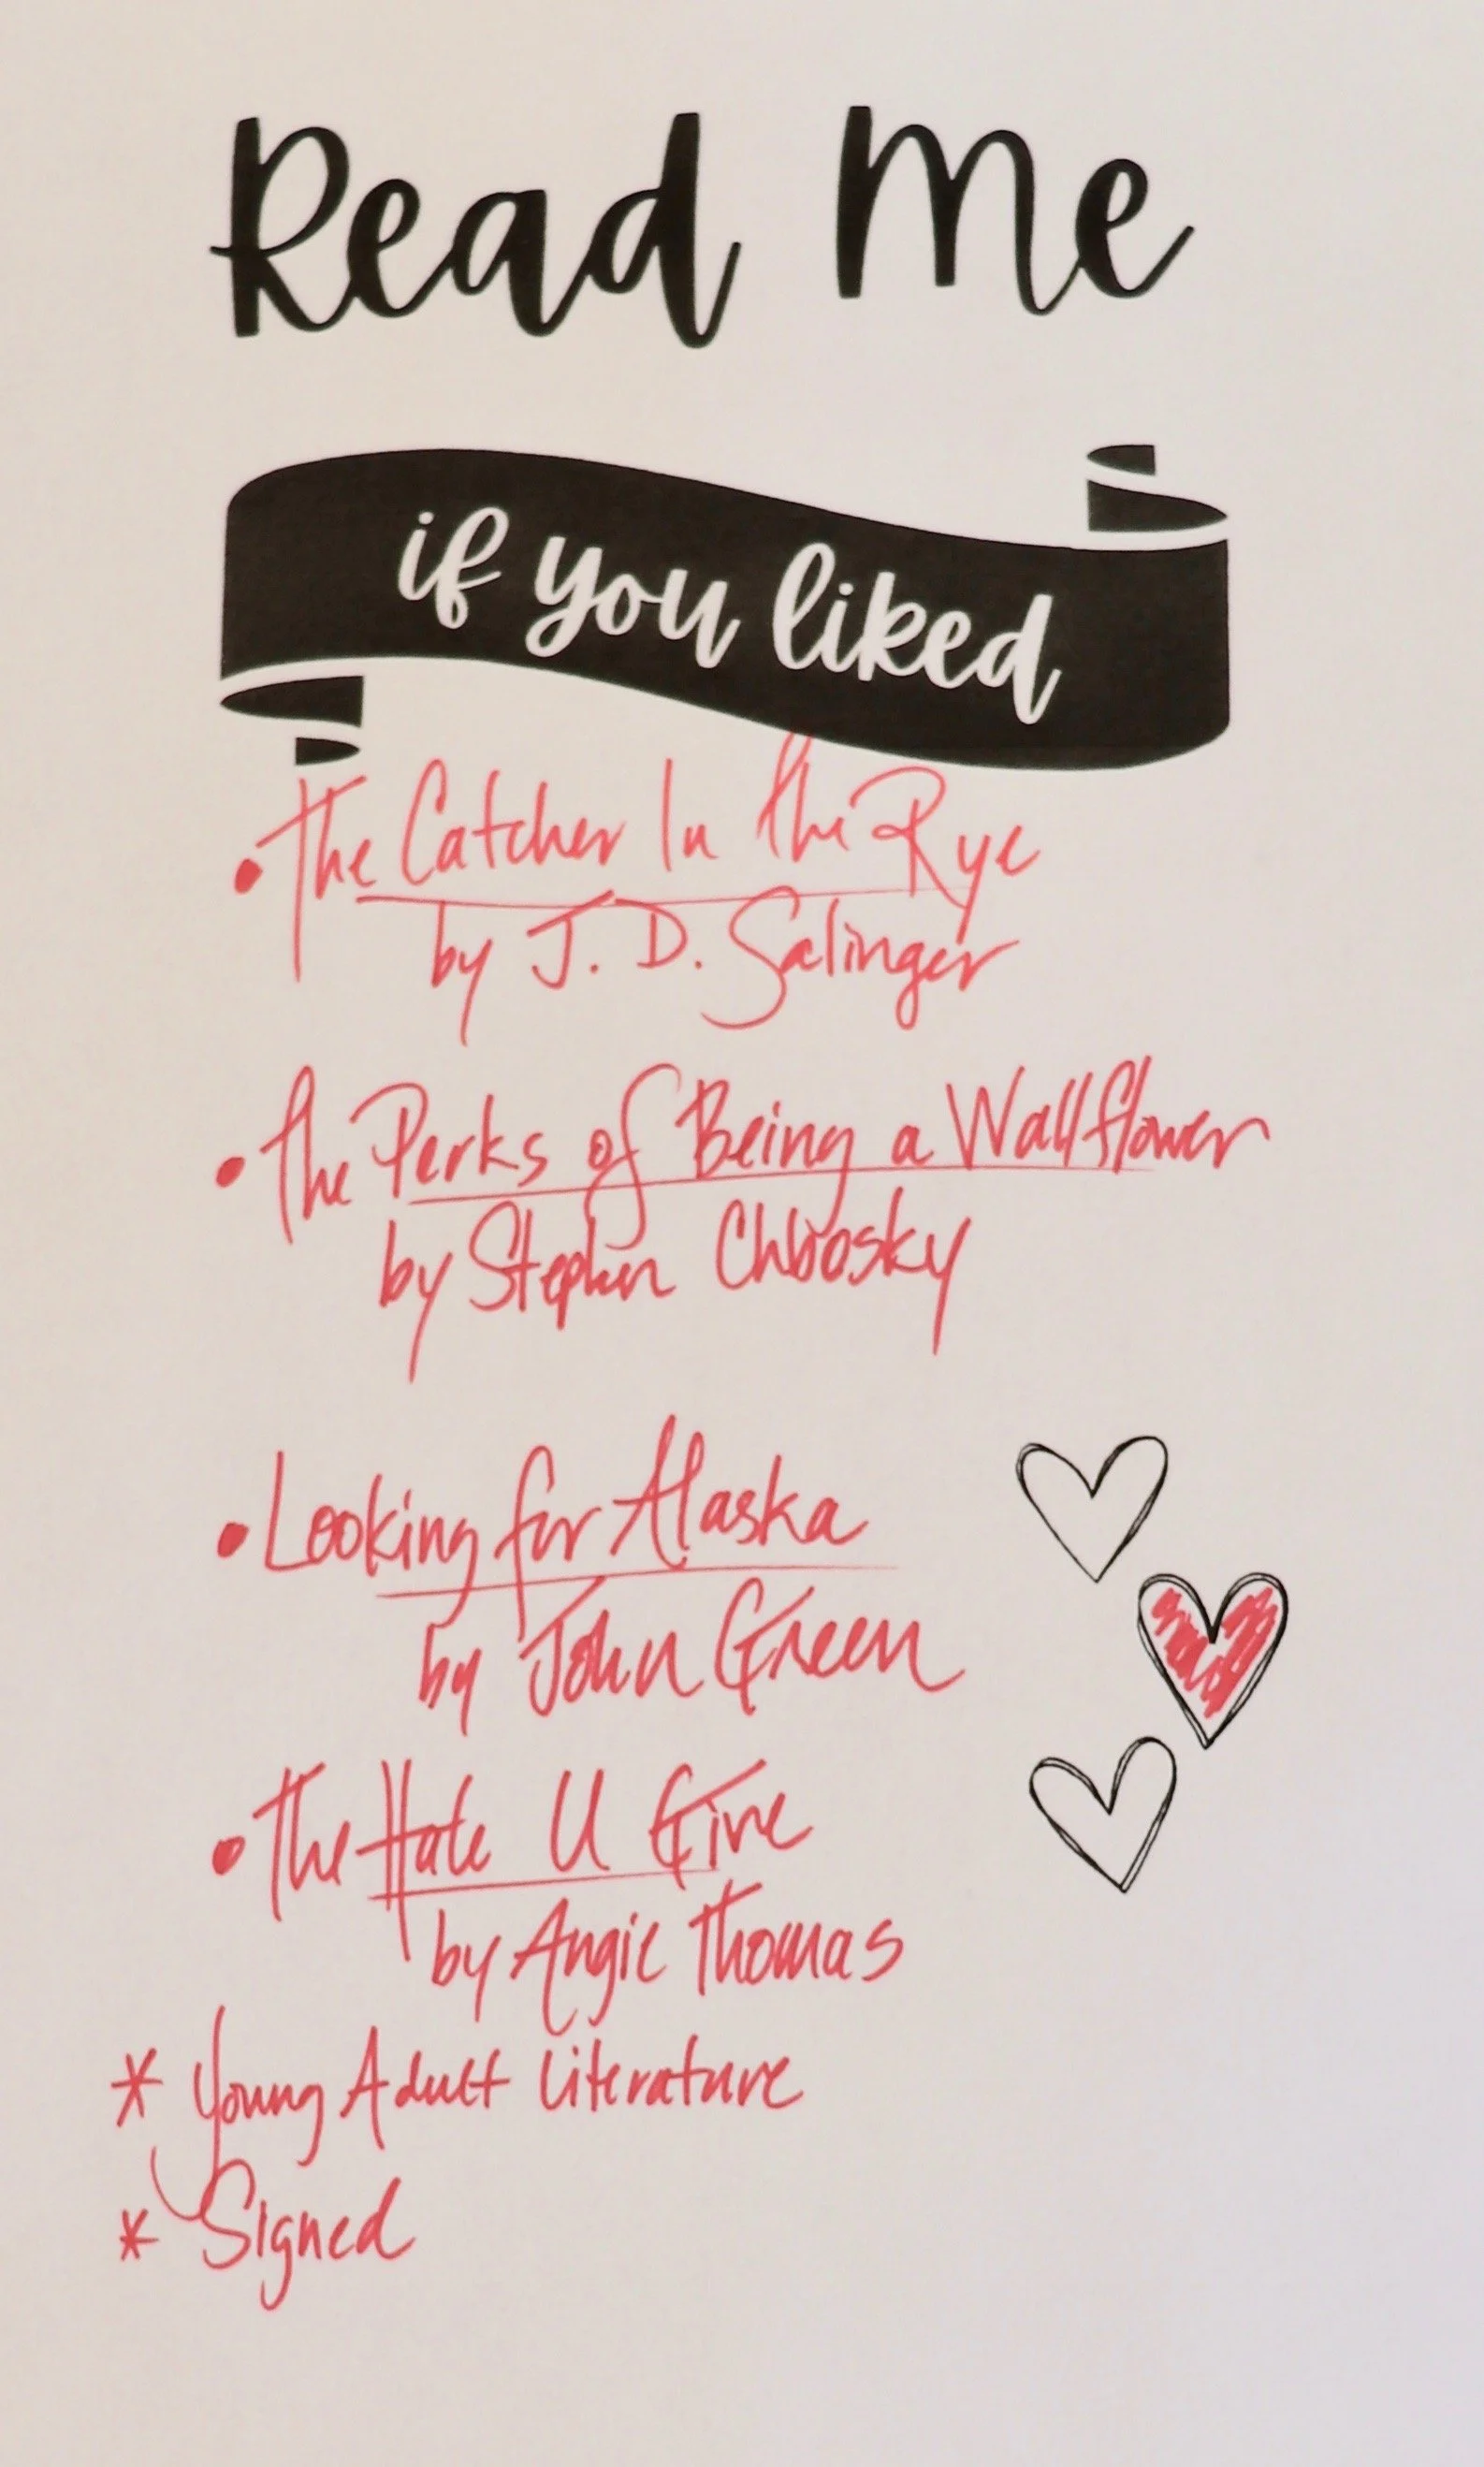 Read Me
if you liked
• The Catcher In the Rye
by J. D. Salinger
• The Perks of Being a Wallflower
by Stephen Chbosky
• Looking for Alaska
by John Green
• The Hate U Give
by Angie Thomas
* Young Adult Literature
* Signed